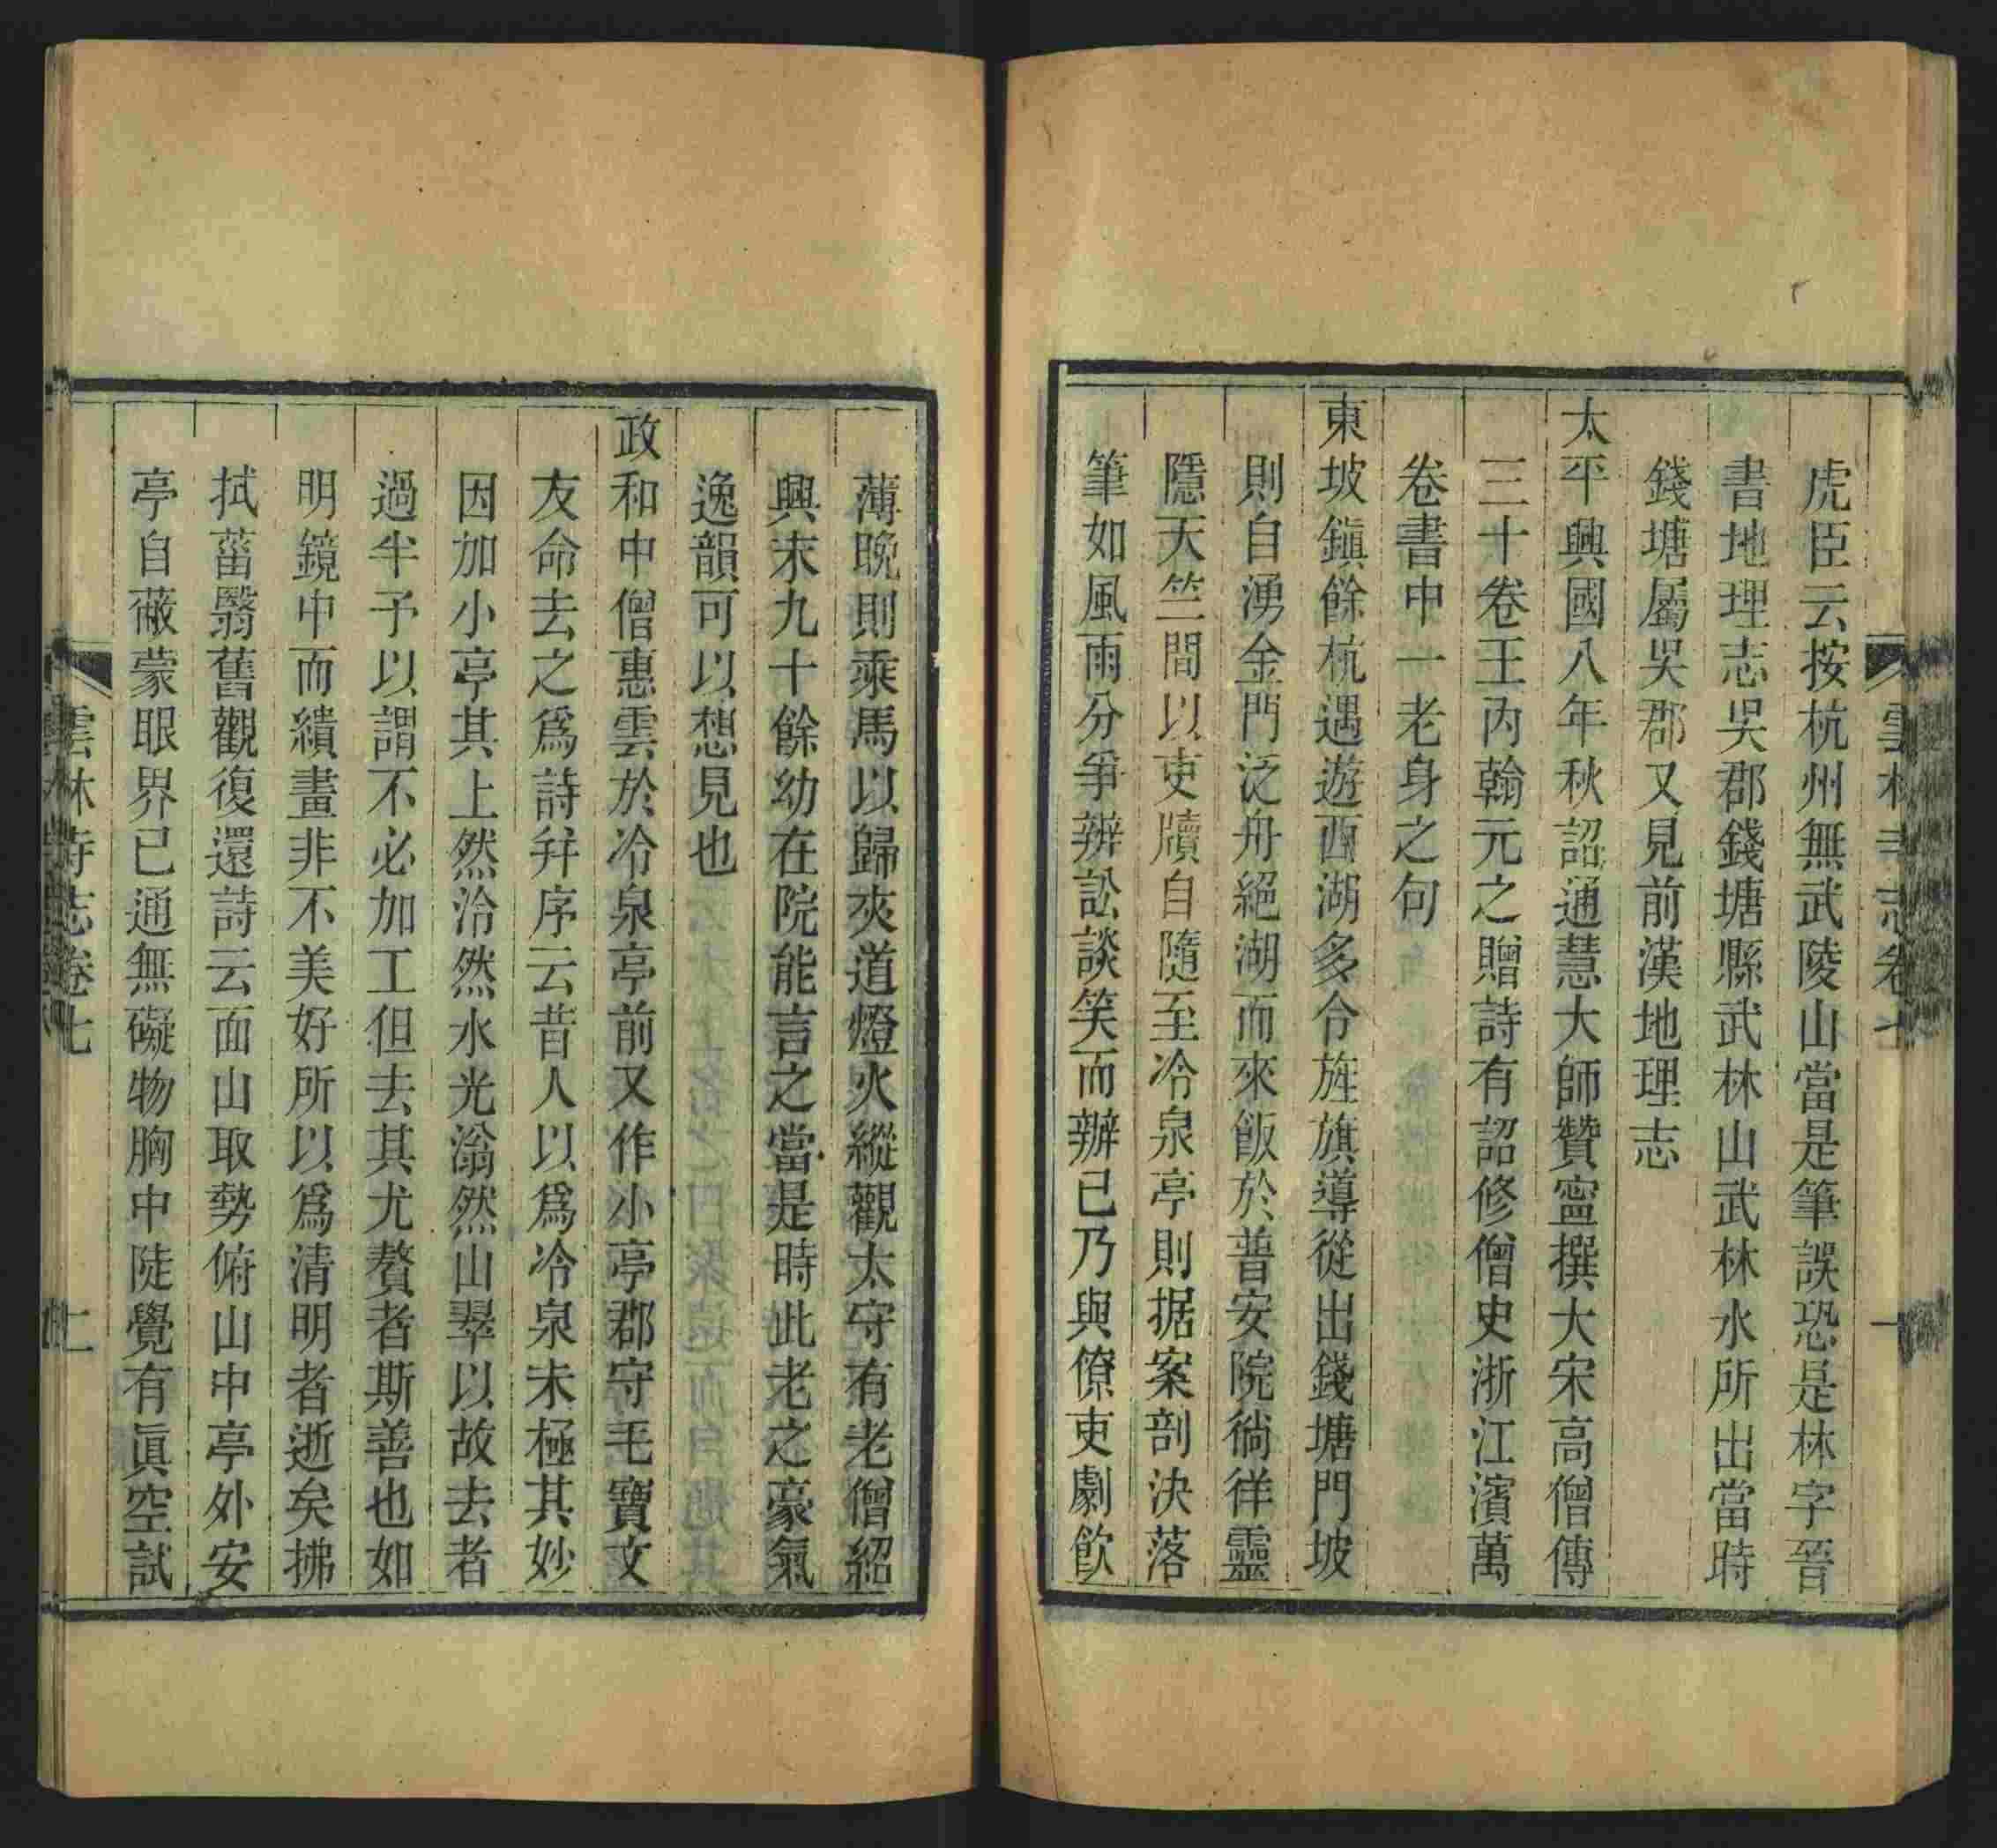 虎臣云按杭州無武陵山當是筆誤恐是林字晉
書地理志吳郡錢塘縣武林山武林水所出當時
錢塘屬吳郡又見前漢地理志
太平興國八年秋詔通慧大師贊寧撰大宋高僧傳
三十卷王內翰元之贈詩有詔修僧史浙江濱萬
卷書中一老身之句
東坡鎭餘杭遇遊西湖多令旌旗導從出錢塘門坡
則自湧金門泛舟絕湖而來飯於普安院徜徉靈
隱天竺間以吏牘自隨至冷泉亭則据案剖決落
筆如風雨分爭辨訟談笑而辦已乃與僚吏劇飲
薄晚則乘馬以歸夾道燈火縱觀太守有老僧紹
興末九十餘幼在院能言之當是時此老之豪氣
逸韻可以想見也
政和中僧惠雲於冷泉亭前又作小亭郡守毛寶文
友命去之爲詩幷序云昔人以爲冷泉未極其妙
因加小亭其上然洽然水光滃然山翠以故去者
過半予以謂不必加工但去其尤贅者斯善也如
明鏡中而繢畫非不美好所以爲清明者逝矣拂
拭菑翳舊觀復還詩云面山取勢俯山中亭外安
亭自蔽蒙眼界已通無礙物胸中陡覺有眞空試
雲林寺志卷七